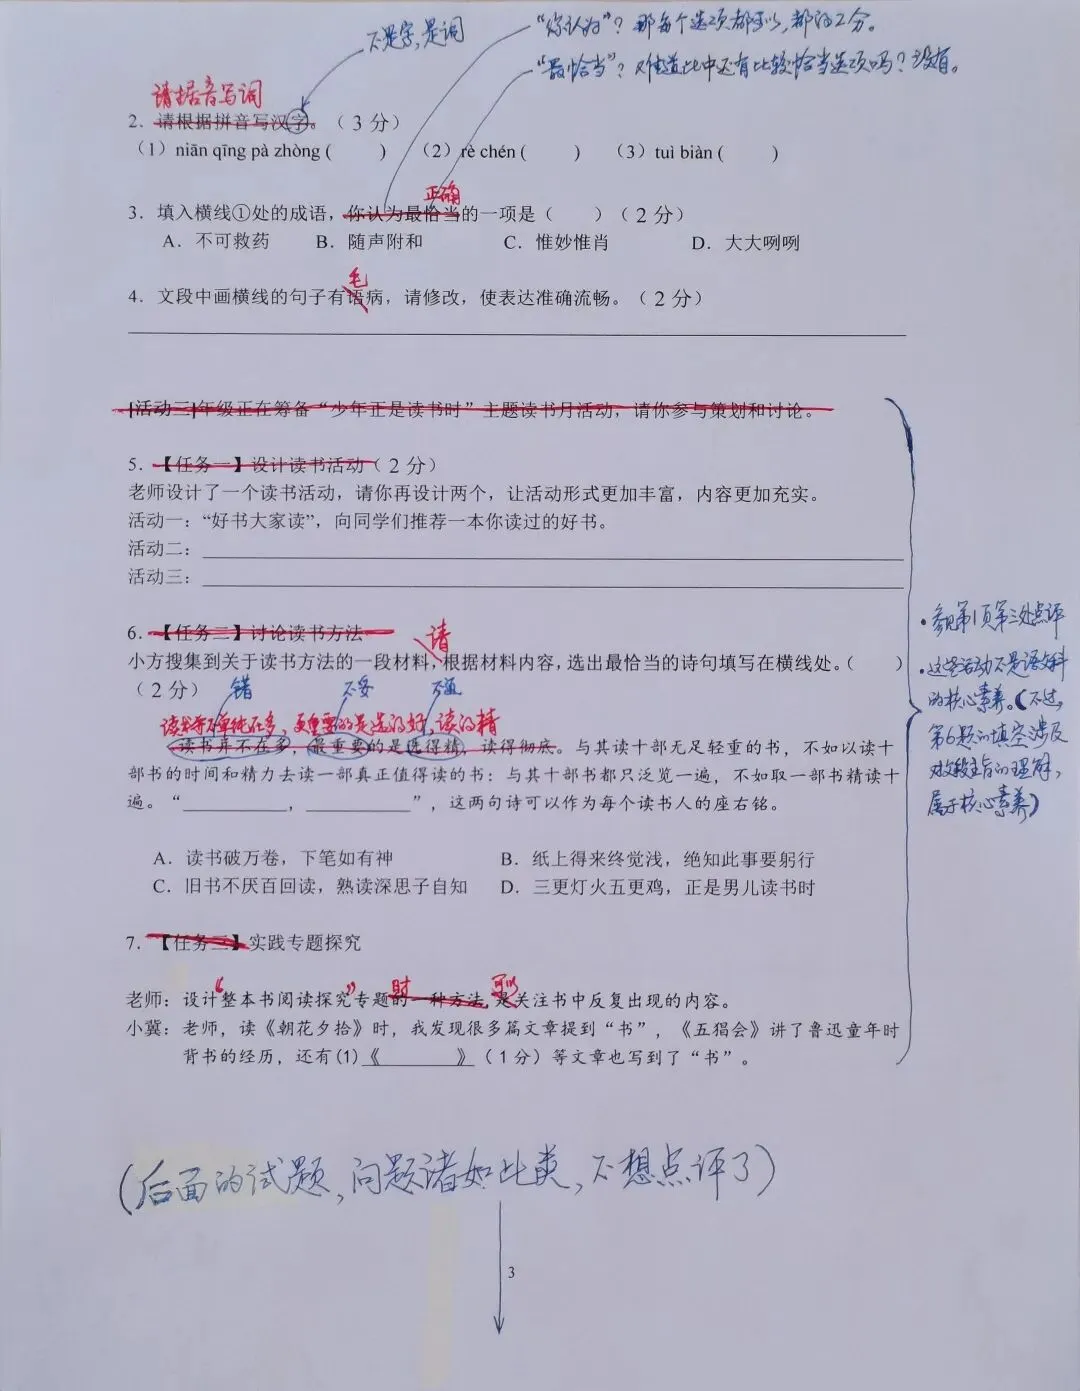 不是字，是词
“你认为”？那每个选项都可以，都得2分。
“最恰当”？难道此中还有比较恰当选项吗？没有。
请据音写词
2．请根据拼音写汉字。（3 分）
（1）niān qīng pà zhòng (　　) （2）rè chén (　　) （3）tuì biàn (　　)
正确
3．填入横线①处的成语，你认为最恰当的一项是（　　）（2 分）
A．不可救药　B．随声附和　C．惟妙惟肖　D．大大咧咧
毛
4．文段中画横线的句子有语病，请修改，使表达准确流畅。（2 分）
[活动三]年级正在筹备“少年正是读书时”主题读书月活动，请你参与策划和讨论。
5．【任务一】设计读书活动（2 分）
老师设计了一个读书活动，请你再设计两个，让活动形式更加丰富，内容更加充实。
活动一：“好书大家读”，向同学们推荐一本你读过的好书。
活动二：
活动三：
6．【任务二】讨论读书方法
请
小方搜集到关于读书方法的一段材料，根据材料内容，选出最恰当的诗句填写在横线处。（　　）
（2 分）
错　不妥　不通
读书并不单纯在多，更重要的是选的好，读的精
读书并不在多，最重要的是选得精，读得彻底。与其读十部无足轻重的书，不如以读十
部书的时间和精力去读一部真正值得读的书；与其十部书都只泛览一遍，不如取一部书精读十
遍。“__________，__________”，这两句诗可以作为每个读书人的座右铭。
A．读书破万卷，下笔如有神　B．纸上得来终觉浅，绝知此事要躬行
C．旧书不厌百回读，熟读深思子自知　D．三更灯火五更鸡，正是男儿读书时
7．【任务三】实践专题探究
“　”　时　可以
老师：设计整本书阅读探究专题的一种方法，是关注书中反复出现的内容。
小冀：老师，读《朝花夕拾》时，我发现很多篇文章提到“书”，《五猖会》讲了鲁迅童年时
背书的经历，还有(1)《________》（1 分）等文章也写到了“书”。
·参见第1页第三处点评
·这些活动不是语文科
的核心素养。（不过，
第6题的填空涉及
对文段主旨的理解，
属于核心素养）
（后面的试题，问题诸如此类，不想点评了）
3